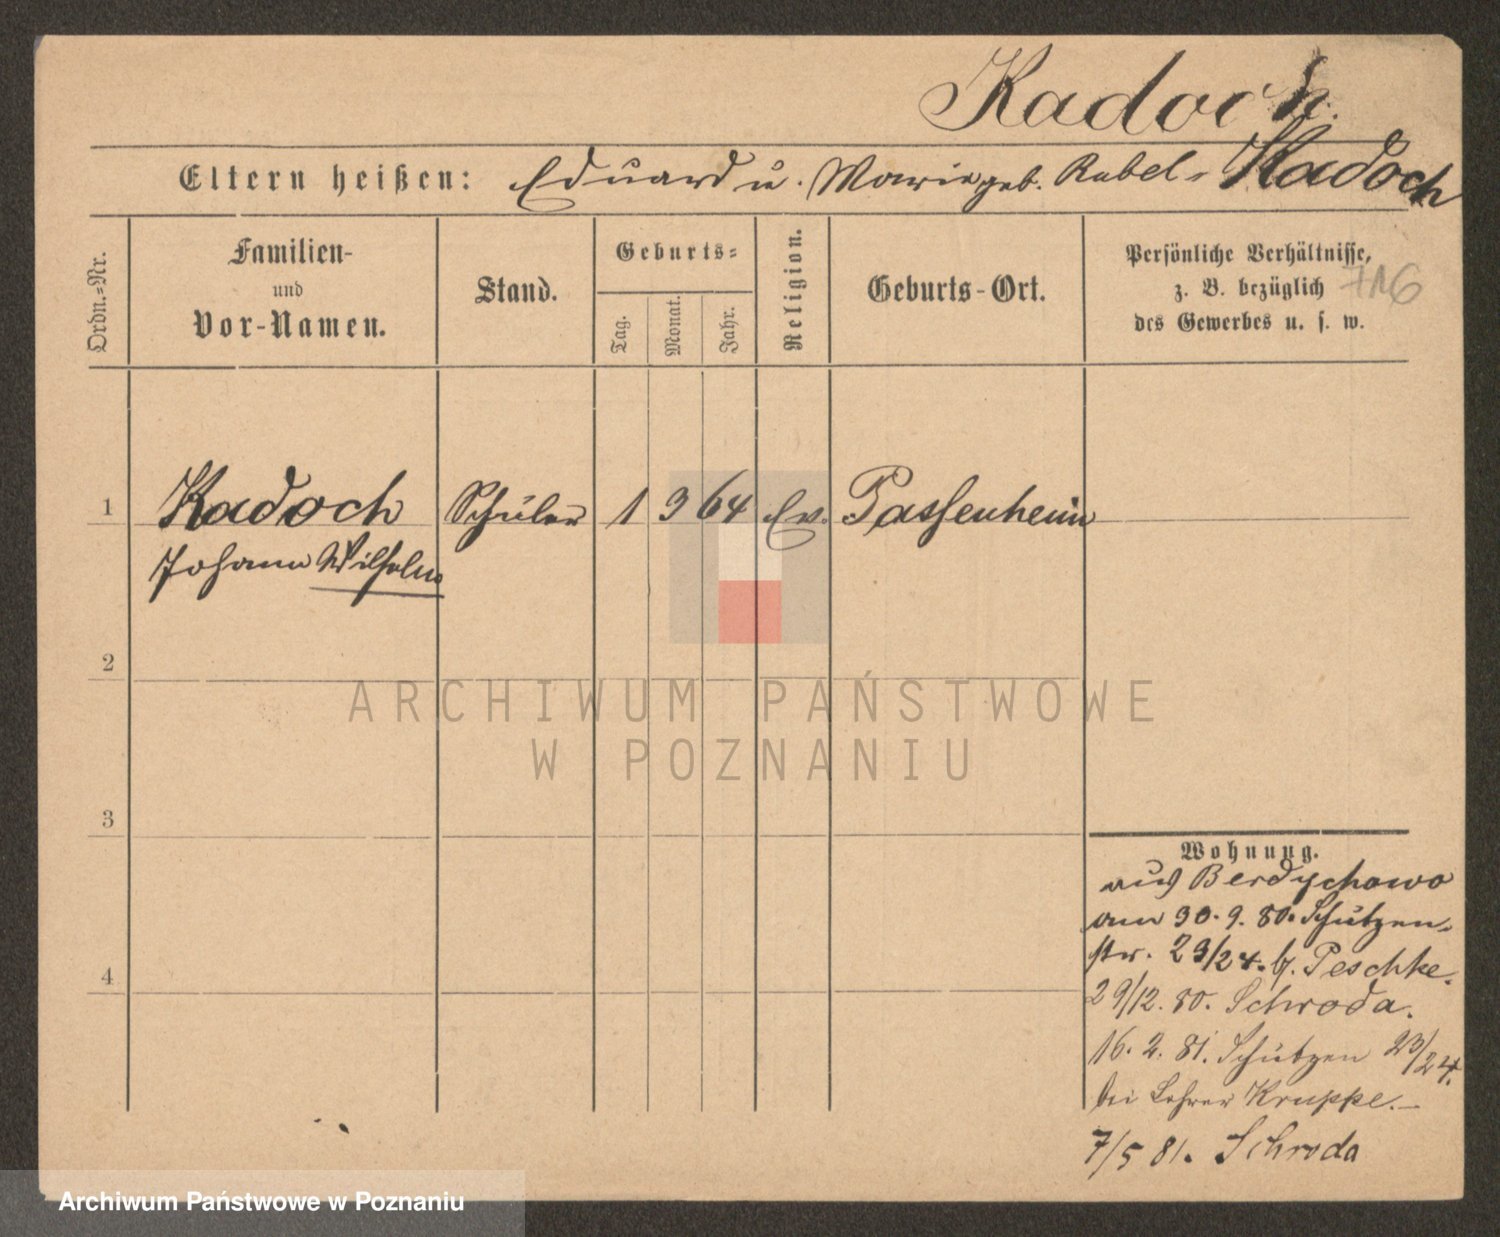 Kadoch.
Eltern heißen: Eduard u. Marie geb. Rabel - Kadoch
Ordn.-Nr.
Familien-
und
Vor-Namen.
Stand.
Geburts-
Tag.
Monat.
Jahr.
Religion.
Geburts-Ort.
Persönliche Verhältnisse,
z. B. bezüglich
des Gewerbes u. s. w.
716
1 Kadoch Schüler 1 9 64 Ev. Passenheim
Johann Wilhelm
2
ARCHIWUM PAŃSTWOWE
W POZNANIU
3
Wohnung.
aus Berdychowo
am 30. 9. 80. Schützen-
str. 23/24. b. Peschke.
4
29/12. 80. Schroda.
16. 2. 81. Schützen 23/24.
bei Lehrer Kruppe.
7/5 81. Schroda
Archiwum Państwowe w Poznaniu